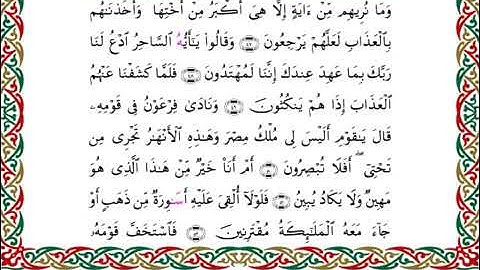 وَمَا نُرِيهِم مِّنْ ءَايَةٍ إِلَّا هِىَ أَكْبَرُ مِنْ أُخْتِهَا وَأَخَذْنَٰهُم
بِالْعَذَابِ لَعَلَّهُمْ يَرْجِعُونَ ﴿٤٨﴾ وَقَالُوا۟ يَٰٓأَيُّهَ السَّاحِرُ ادْعُ لَنَا
رَبَّكَ بِمَا عَهِدَ عِندَكَ إِنَّنَا لَمُهْتَدُونَ ﴿٤٩﴾ فَلَمَّا كَشَفْنَا عَنْهُمُ
الْعَذَابَ إِذَا هُمْ يَنكُثُونَ ﴿٥٠﴾ وَنَادَىٰ فِرْعَوْنُ فِى قَوْمِهِۦ
قَالَ يَٰقَوْمِ أَلَيْسَ لِى مُلْكُ مِصْرَ وَهَٰذِهِ الْأَنْهَٰرُ تَجْرِى مِن
تَحْتِىٓ ۖ أَفَلَا تُبْصِرُونَ ﴿٥١﴾ أَمْ أَنَا۠ خَيْرٌ مِّنْ هَٰذَا الَّذِى هُوَ
مَهِينٌ وَلَا يَكَادُ يُبِينُ ﴿٥٢﴾ فَلَوْلَآ أُلْقِىَ عَلَيْهِ أَسْوِرَةٌ مِّن ذَهَبٍ أَوْ
جَآءَ مَعَهُ الْمَلَٰٓئِكَةُ مُقْتَرِنِينَ ﴿٥٣﴾ فَاسْتَخَفَّ قَوْمَهُۥ